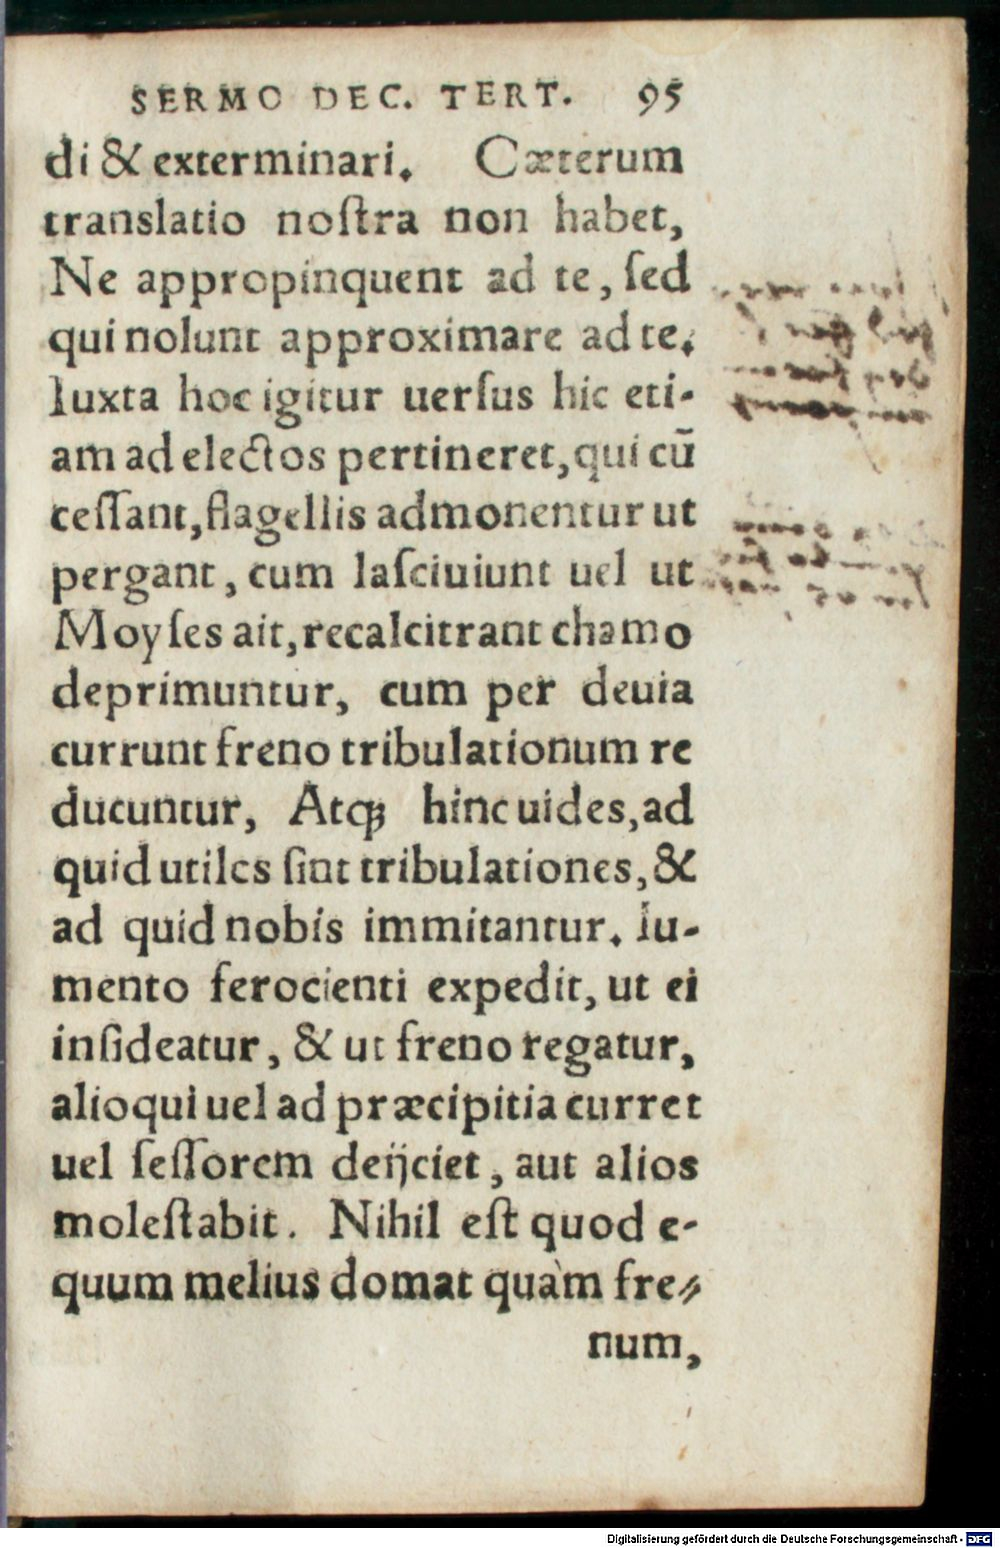 SERMO DEC. TERT. 95
di & exterminari. Cæterum
translatio noſtra non habet,
Ne appropinquent ad te, ſed
qui nolunt approximare ad te.
Iuxta hoc igitur uerſus hic eti-
am ad electos pertineret, qui cū
ceſſant, flagellis admonentur ut
pergant, cum laſciuiunt uel ut
Moyſes ait, recalcitrant chamo
deprimuntur, cum per deuia
currunt freno tribulationum re
ducuntur, Atqꝫ hinc uides, ad
quid utiles ſint tribulationes, &
ad quid nobis immitantur. Iu-
mento ferocienti expedit, ut ei
inſideatur, & ut freno regatur,
alioqui uel ad præcipitia curret
uel ſeſſorem deijciet, aut alios
moleſtabit. Nihil eſt quod e-
quum melius domat quàm fre-
num,
Digitalisierung gefördert durch die Deutsche Forschungsgemeinschaft - DFG